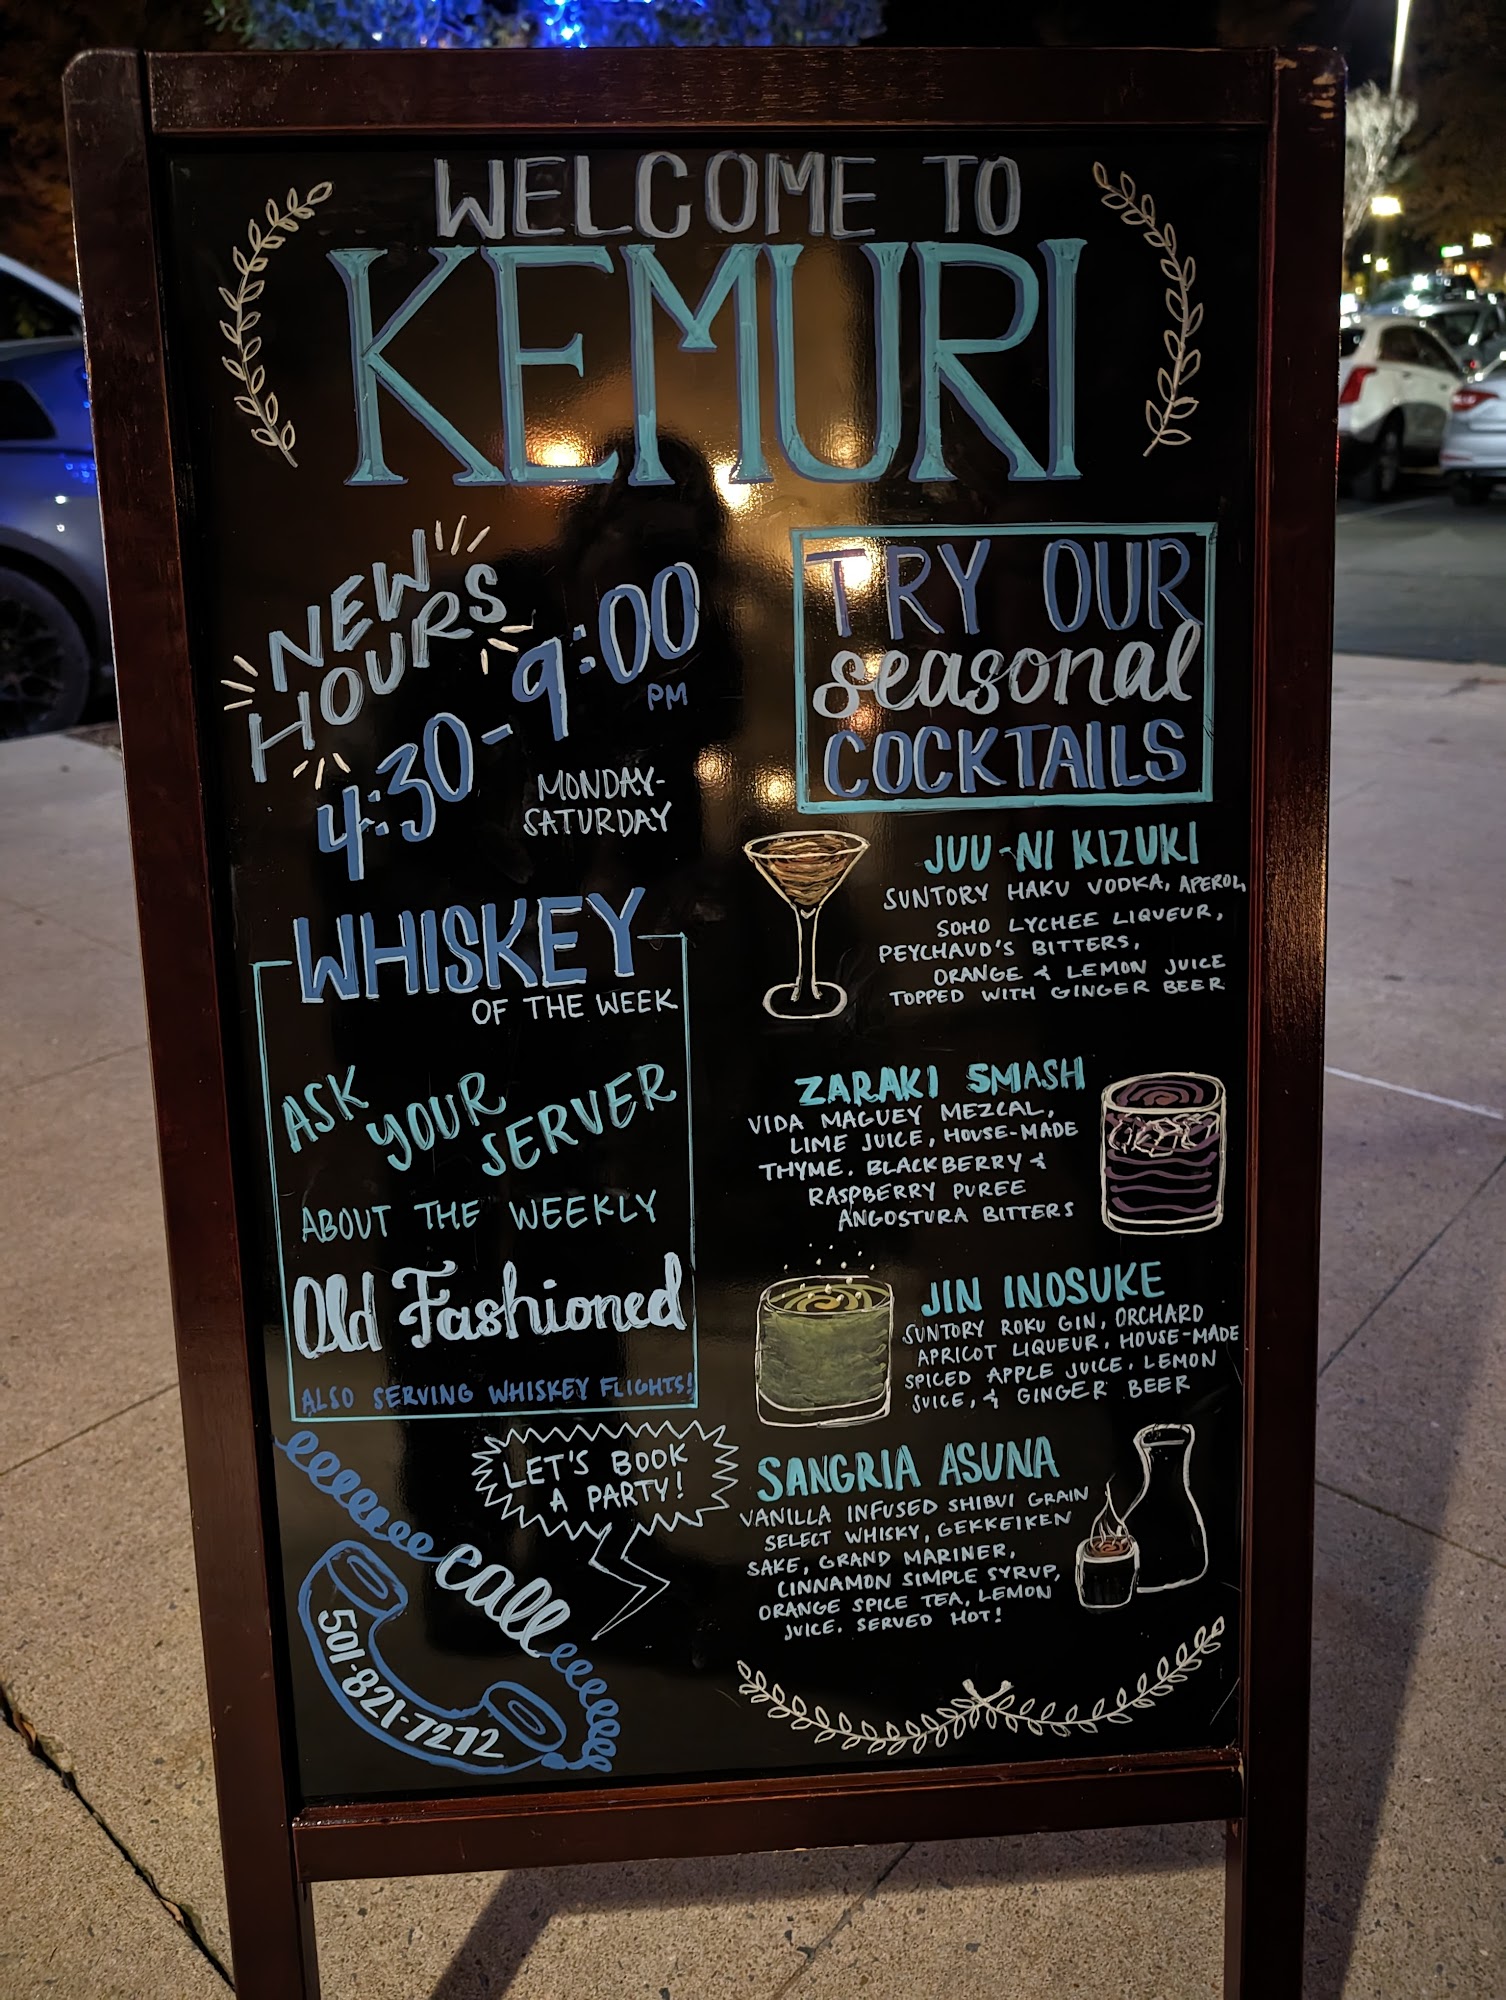 WELCOME TO
KEMURI
NEW
HOURS
4:30-9:00
PM
MONDAY-
SATURDAY
WHISKEY
OF THE WEEK
ASK
YOUR
SERVER
ABOUT THE WEEKLY
Old Fashioned
ALSO SERVING WHISKEY FLIGHTS!
LET'S BOOK
A PARTY!
call
501-821-7272
TRY OUR
seasonal
COCKTAILS
JUU-NI KIZUKI
SUNTORY HAKU VODKA, APEROL,
SOHO LYCHEE LIQUEUR,
PEYCHAUD'S BITTERS,
ORANGE & LEMON JUICE
TOPPED WITH GINGER BEER
ZARAKI SMASH
VIDA MAGUEY MEZCAL,
LIME JUICE, HOUSE-MADE
THYME, BLACKBERRY &
RASPBERRY PUREE
ANGOSTURA BITTERS
JIN INOSUKE
SUNTORY ROKU GIN, ORCHARD
APRICOT LIQUEUR, HOUSE-MADE
SPICED APPLE JUICE, LEMON
JUICE, & GINGER BEER
SANGRIA ASUNA
VANILLA INFUSED SHIBUI GRAIN
SELECT WHISKY, GEKKEIKEN
SAKE, GRAND MARINER,
CINNAMON SIMPLE SYRUP,
ORANGE SPICE TEA, LEMON
JUICE. SERVED HOT!